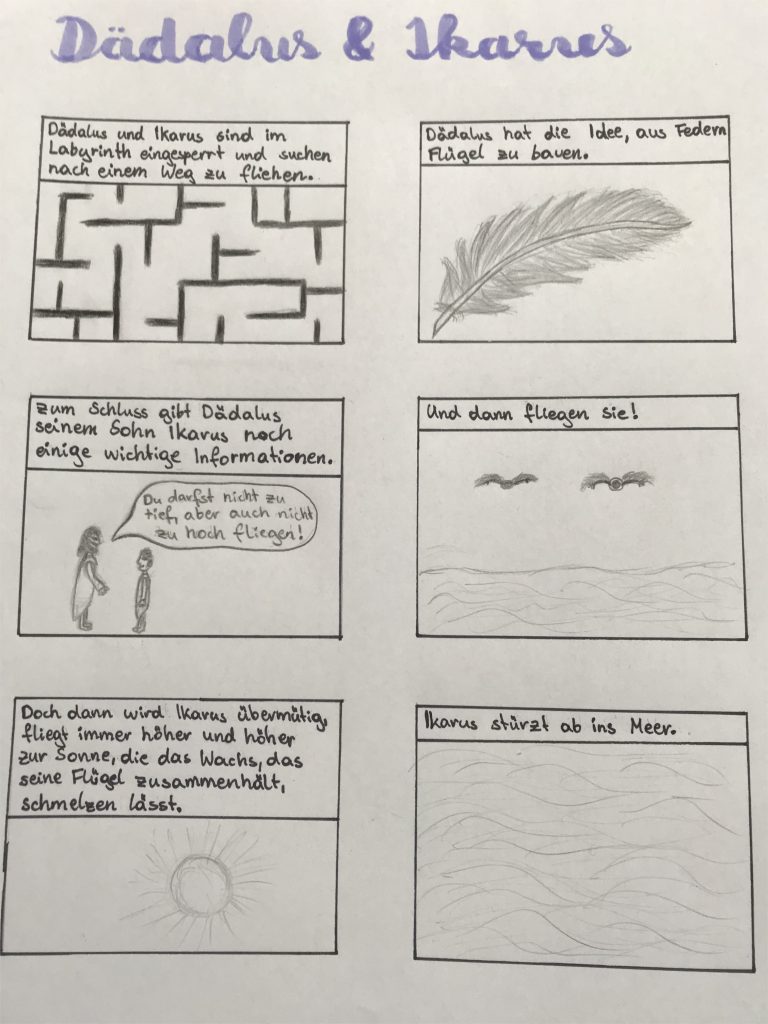 Dädalus & Ikarus
Dädalus und Ikarus sind im
Labyrinth eingesperrt und suchen
nach einem Weg zu fliehen.
Dädalus hat die Idee, aus Federn
Flügel zu bauen.
Zum Schluss gibt Dädalus
seinem Sohn Ikarus noch
einige wichtige Informationen.
Du darfst nicht zu
tief, aber auch nicht
zu hoch fliegen!
Und dann fliegen sie!
Doch dann wird Ikarus übermütig,
fliegt immer höher und höher
zur Sonne, die das Wachs, das
seine Flügel zusammenhält,
schmelzen lässt.
Ikarus stürzt ab ins Meer.